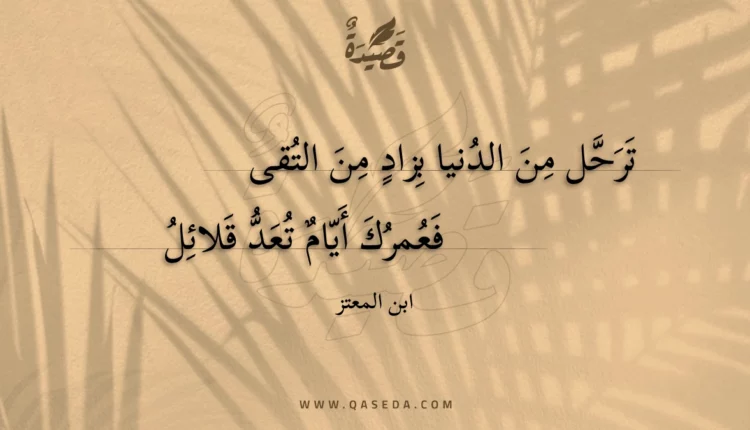 قَصِيدَةٌ
تَرَحَّل مِنَ الدُنيا بِزادٍ مِنَ التُقى
فَعُمرُكَ أَيّامٌ تُعَدُّ قَلائِلُ
ابن المعتز
WWW.QASEDA.COM